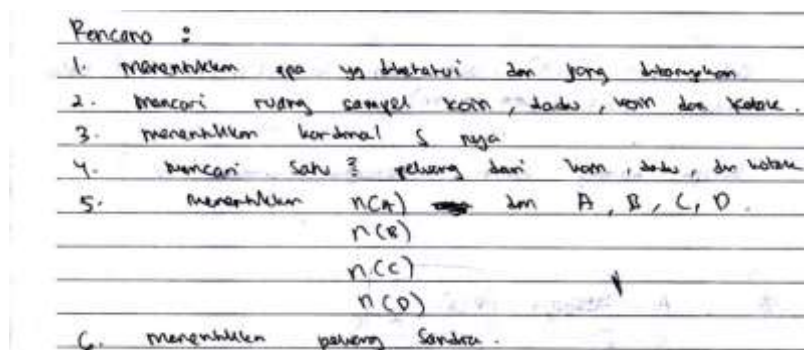 Rencana :
1. menentukan apa yg diketahui dan yang ditanyakan
2. mencari ruang sampel koin, dadu, koin dan kotak.
3. menentukan kardinal S nya
4. mencari satu2 peluang dari koin, dadu, dn kotak
5. menentukan n(A) dan A, B, C, D.
n(B)
n(C)
n(D)
6. menentukan peluang Sandra.